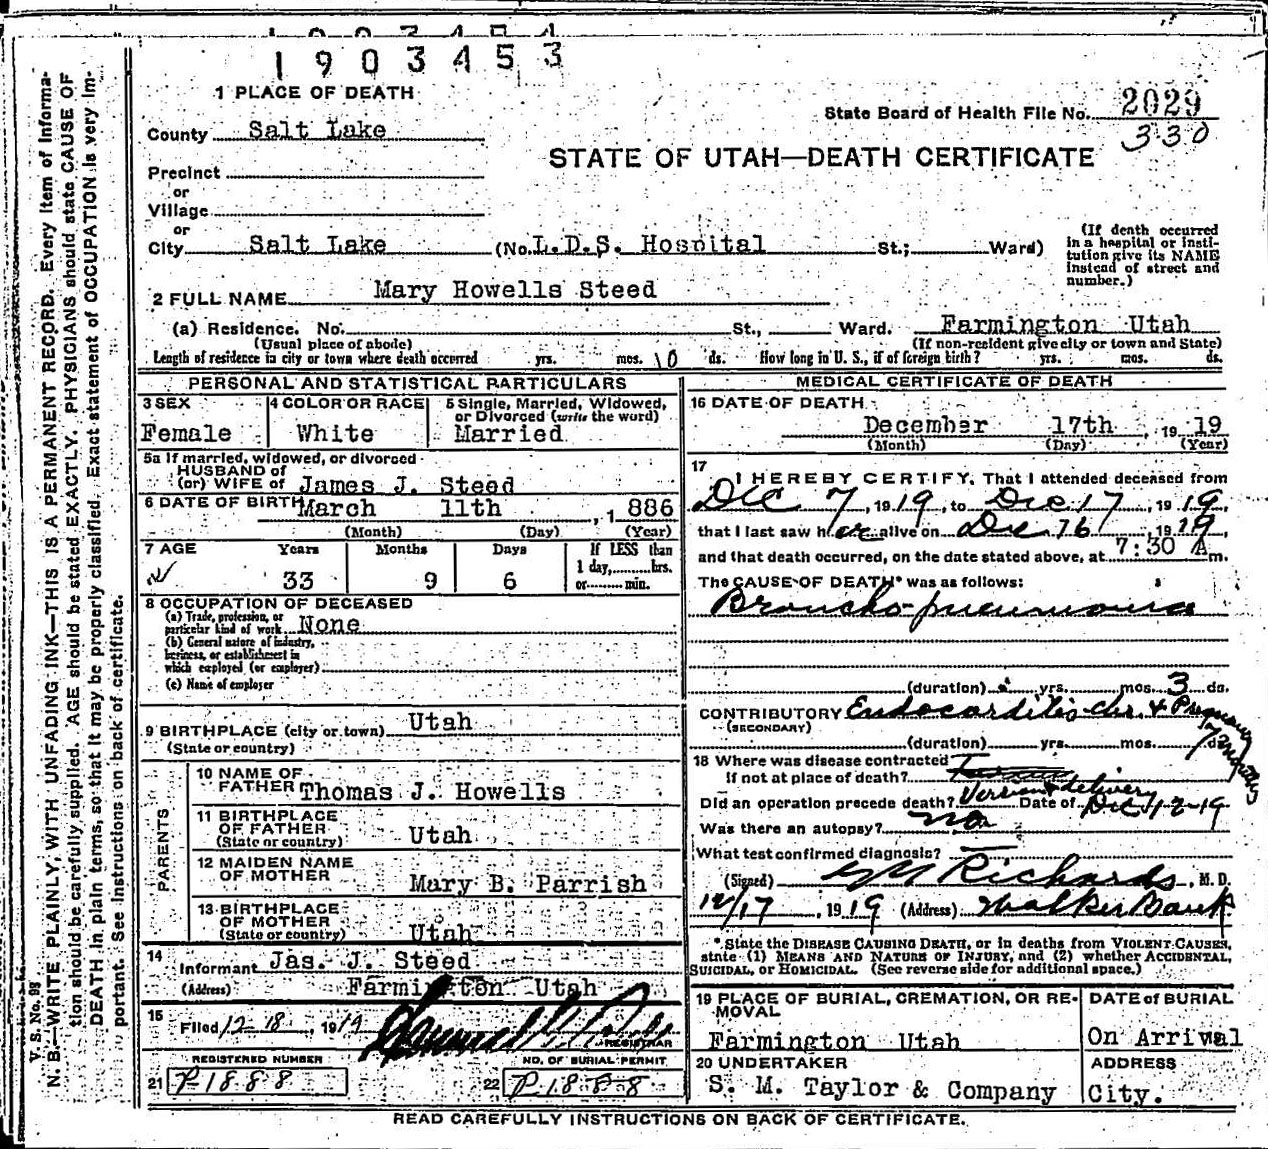 1903454
1903453
1 PLACE OF DEATH
State Board of Health File No. 2029
330
County Salt Lake
STATE OF UTAH—DEATH CERTIFICATE
Precinct
or
Village
or
City Salt Lake (No. L.D.S. Hospital St.; Ward)
(If death occurred in a hospital or institution give its NAME instead of street and number.)
2 FULL NAME Mary Howells Steed
(a) Residence. No. St., Ward. Farmington Utah
(Usual place of abode) (If non-resident give city or town and State)
Length of residence in city or town where death occurred yrs. mos. 10 ds. How long in U. S., if of foreign birth? yrs. mos. ds.
PERSONAL AND STATISTICAL PARTICULARS
3 SEX 4 COLOR OR RACE 5 Single, Married, Widowed, or Divorced (write the word)
Female White Married
5a If married, widowed, or divorced
HUSBAND of
(or) WIFE of James J. Steed
6 DATE OF BIRTH March 11th, 1886
(Month) (Day) (Year)
7 AGE Years Months Days If LESS than 1 day,......hrs. or......min.
33 9 6
8 OCCUPATION OF DECEASED
(a) Trade, profession, or particular kind of work None
(b) General nature of industry, business, or establishment in which employed (or employer)
(c) Name of employer
9 BIRTHPLACE (city or town) Utah
(State or country)
PARENTS
10 NAME OF FATHER Thomas J. Howells
11 BIRTHPLACE OF FATHER (State or country) Utah
12 MAIDEN NAME OF MOTHER Mary B. Parrish
13 BIRTHPLACE OF MOTHER (State or country) Utah
14 Informant Jas. J. Steed
(Address) Farmington Utah
15 Filed 12-18, 1919
REGISTRAR
REGISTERED NUMBER NO. OF BURIAL PERMIT
21 P-1888 22 P-1888
MEDICAL CERTIFICATE OF DEATH
16 DATE OF DEATH
December 17th, 1919
(Month) (Day) (Year)
17 I HEREBY CERTIFY, That I attended deceased from
Dec 7, 1919, to Dec 17, 1919,
that I last saw her alive on Dec 16, 1919,
and that death occurred, on the date stated above, at 7:30 A m.
The CAUSE OF DEATH* was as follows:
Broncho-pneumonia
(duration) yrs. mos. 3 ds.
CONTRIBUTORY Endocarditis chr. & Pregnancy
(SECONDARY)
(duration) yrs. mos. ds.
18 Where was disease contracted
If not at place of death?
Did an operation precede death? Version & delivery Date of Dec 12-19
Was there an autopsy? no
What test confirmed diagnosis?
(Signed) G G Richards, M. D.
12/17, 1919 (Address) Walker Bank
*State the DISEASE CAUSING DEATH, or in deaths from VIOLENT CAUSES,
state (1) MEANS AND NATURE OF INJURY, and (2) whether ACCIDENTAL,
SUICIDAL, or HOMICIDAL. (See reverse side for additional space.)
19 PLACE OF BURIAL, CREMATION, OR REMOVAL DATE of BURIAL
Farmington Utah On Arrival
20 UNDERTAKER ADDRESS
S. M. Taylor & Company City.
READ CAREFULLY INSTRUCTIONS ON BACK OF CERTIFICATE.
V. S. No. 98
N. B.—WRITE PLAINLY, WITH UNFADING INK—THIS IS A PERMANENT RECORD. Every item of informa-
tion should be carefully supplied. AGE should be stated EXACTLY. PHYSICIANS should state CAUSE OF
DEATH in plain terms, so that it may be properly classified. Exact statement of OCCUPATION is very im-
portant. See instructions on back of certificate.